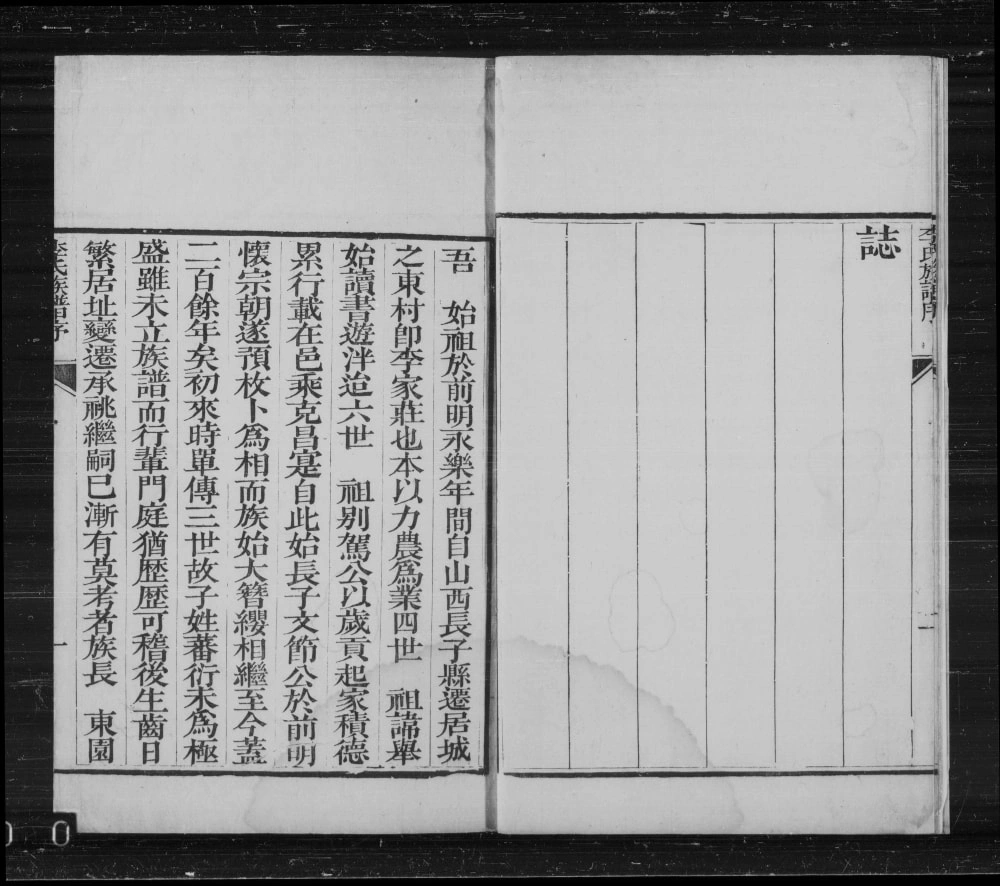 李氏族譜序
誌
吾　始祖於前明永樂年間自山西長子縣遷居城
之東村卽李家莊也本以力農爲業四世　祖諱舉
始讀書遊泮迨六世　祖别駕公以歲貢起家積德
累行載在邑乘克昌寔自此始長子文節公於前明
懷宗朝遂預枚卜爲相而族始大簪纓相繼至今蓋
二百餘年矣初來時單傳三世故子姓蕃衍未爲極
盛雖未立族譜而行輩門庭猶歷歷可稽後生齒日
繁居址變遷承祧繼嗣已漸有莫考者族長　東園
李氏族譜序
一